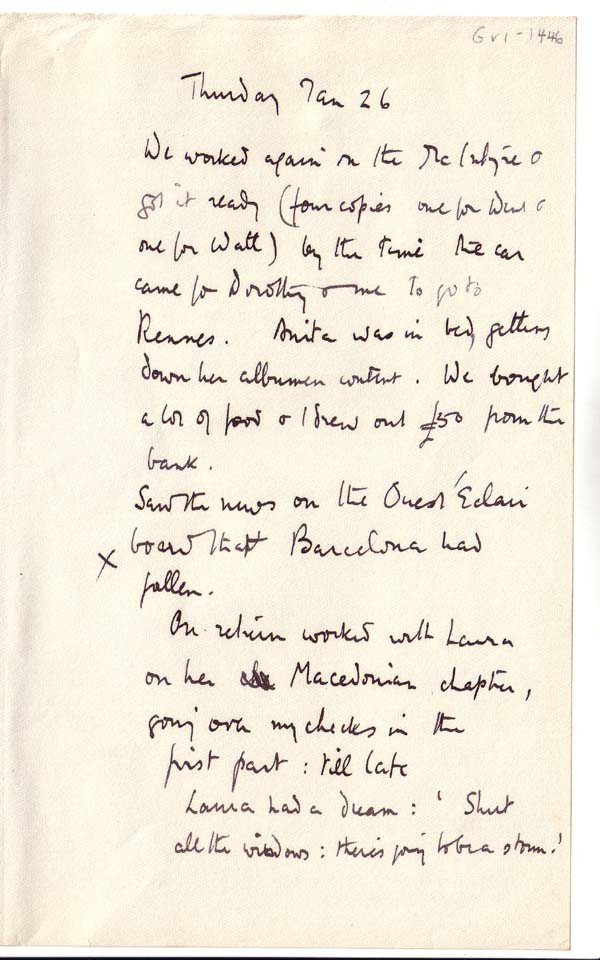 Gv1-1446
Thursday Jan 26
We worked again on the McIntyre &
got it ready (four copies one for &
one for Watt) by the time the car
came for Dorothy & me to go to
Rennes. Anita was in bed, getting
down her albumen content. We bought
a lot of food & I drew out £50 from the
bank.
Saw the news on the Ouest Éclair
x board that Barcelona had
fallen.
On return worked with Laura
on her Macedonian chapter,
going over my checks in the
first part : till late
Laura had a dream : ' Shut
all the windows : there's going to be a storm.'